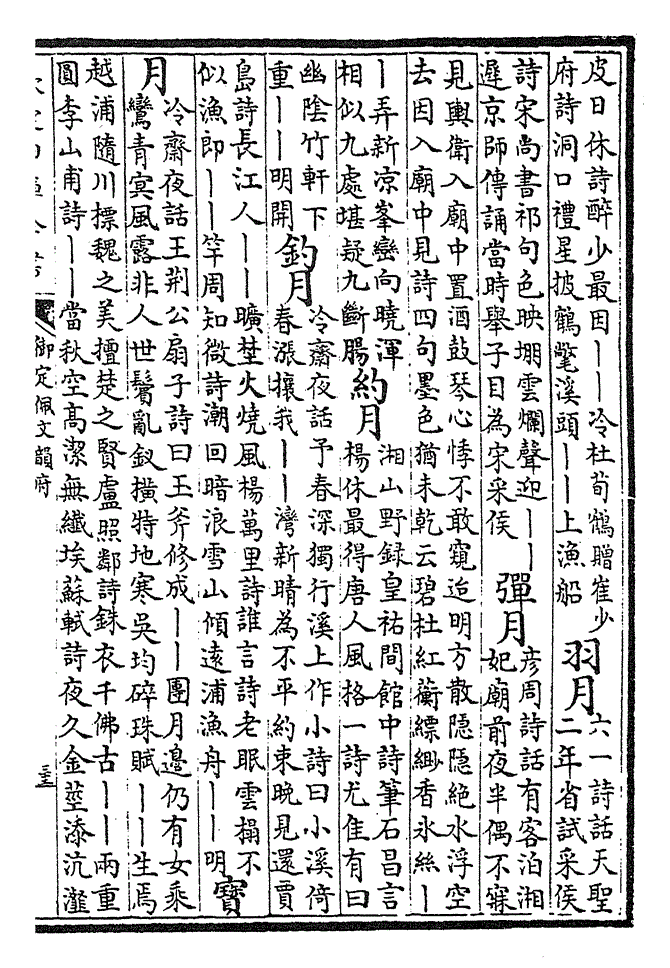 皮日休詩醉少最因丨丨冷杜荀鶴贈崔少
府詩洞口禮星披鶴氅溪頭丨丨上漁船
羽月
六一詩話天聖
二年省試采侯
詩宋尚書祁句色映堋雲爛聲迎丨丨
遲京師傳誦當時舉子目為宋采侯
彈月
彥周詩話有客泊湘
妃廟前夜半偶不寐
見輿衛入廟中置酒鼓琴心悸不敢窺迨明方散隱隱絶水浮空
去因入廟中見詩四句墨色猶未乾云碧杜紅蘅縹緲香冰絲丨
丨弄新凉峯巒向曉渾
相似九處堪疑九斷腸
約月
湘山野錄皇祐間館中詩筆石昌言
楊休最得唐人風格一詩尤佳有曰
幽陰竹軒下
重丨丨明開
釣月
冷齋夜話予春深獨行溪上作小詩曰小溪倚
春漲攘我丨丨灣新晴為不平約束晚見還賈
島詩長江人丨丨曠埜火燒風楊萬里詩誰言詩老眠雲榻不
似漁郎丨丨竿周知微詩潮回暗浪雪山傾遠浦漁舟丨丨明
寶
月
冷齋夜話王荆公扇子詩曰玉斧修成丨丨團月邊仍有女乘
鸞青冥風露非人世鬢亂釵橫特地寒吳均碎珠賦丨丨生焉
越浦隨川摽魏之美擅楚之賢盧照鄰詩銖衣千佛古丨丨兩重
圓李山甫詩丨丨當秋空高潔無纖埃蘇軾詩夜久金莖添沆瀣
御定佩文韻府